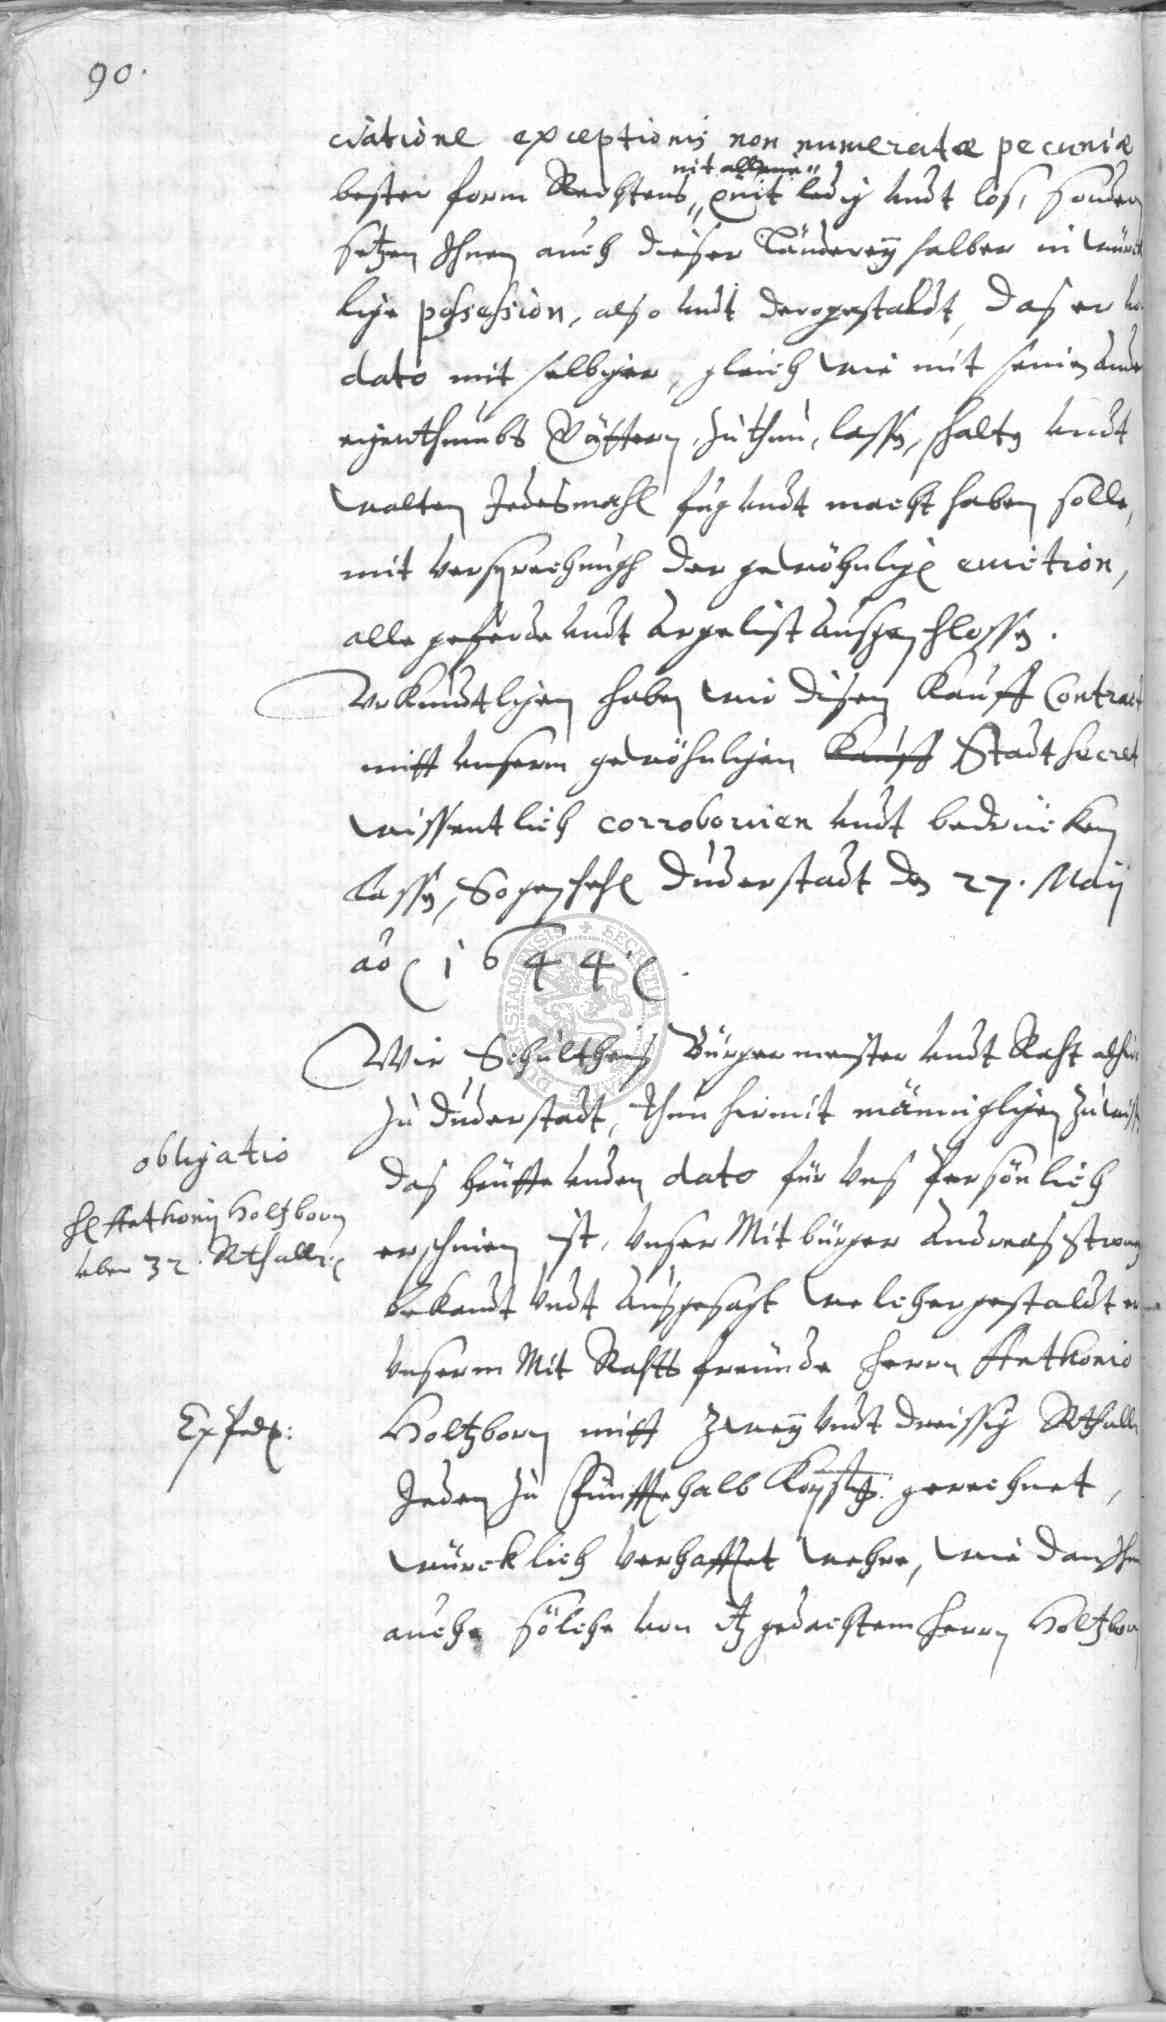 90.
ciatione exceptionis non numeratæ pecuniæ
nit allene
bester form Rechtens, quit ledig undt los, sondern
setzen Ihnen auch dieser Länderey halber in würck
lige possession, also undt dergestaldt, das er
dato mit selbiger, gleich wie mit seinen
eigenthumbs Güttern, zu thun, lassen, schalten undt
walten Jedesmahl fug undt macht haben solle,
mit versprechungh der gewöhnlichen eviction,
alle geferde undt argelist ausgeschlossen.
Urkundtligen haben wir disen Kauff Contract
mitt unserm gewöhnligen Kauff Stadt Secret
wissentlich corroboriren undt bedrücken
lassen, So geschehen Duderstadt den 27. Maij
ao 1644.
Wir Schultheis Bürgermeister undt Raht alhie
zu Duderstadt, thun hirmit männigligen zu
obligatio
das heutte unden dato für uns Persönlich
H Anthonij Holtzborn
uber 32. Rthall:
erschinen ist, unser Mitbürger Andreas
bekandt undt ausgesagt welchergestaldt er
unserm Mit Rahtsfreunde Herrn Anthonio
Exped:
Holtzborn mitt Zwey undt dreissig Rthall
Jeden zu Fünfftehalb gerechnet,
würcklich verhafftet wehre, wie dan
auch solche von itz gedachtem Herrn Holtzborn